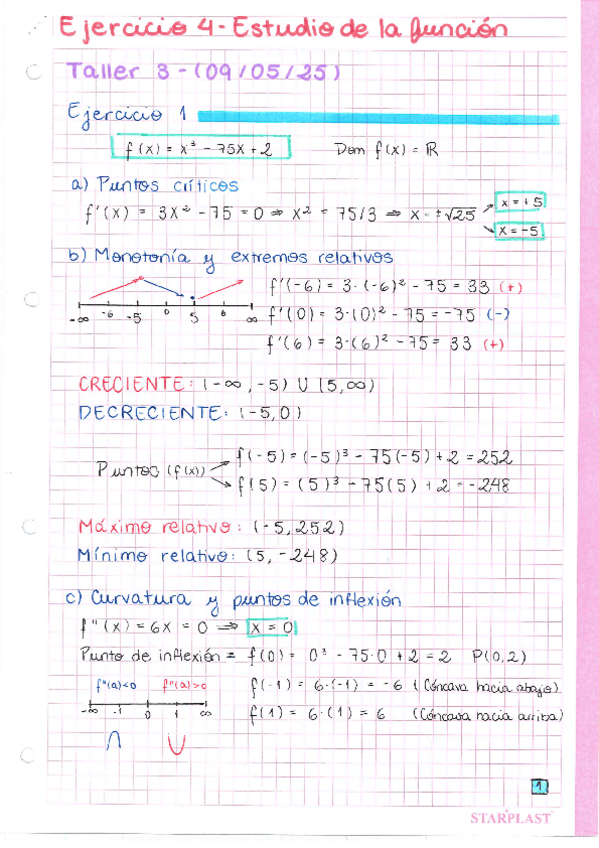 Ejercicio 4 - Estudio de la función
Taller 3 - (09/05/25)
Ejercicio 1
f(x) = x³ - 75x + 2   Dom f(x) = ℝ
a) Puntos críticos
f'(x) = 3x² - 75 = 0 ⇒ x² = 75/3 ⇒ x = ±√25
x = +5
x = -5
b) Monotonía y extremos relativos
-∞ -6 -5 0 5 6 ∞
f'(-6) = 3·(-6)² - 75 = 33 (+)
f'(0) = 3·(0)² - 75 = -75 (-)
f'(6) = 3·(6)² - 75 = 33 (+)
CRECIENTE: (-∞, -5) U (5, ∞)
DECRECIENTE: (-5, 0)
Puntos (f(x))
f(-5) = (-5)³ - 75(-5) + 2 = 252
f(5) = (5)³ - 75(5) + 2 = -248
Máximo relativo: (-5, 252)
Mínimo relativo: (5, -248)
c) Curvatura y puntos de inflexión
f''(x) = 6x = 0 ⇒ x = 0
Punto de inflexión = f(0) = 0³ - 75·0 + 2 = 2   P(0,2)
f''(a)<0   f''(a)>0
-∞ -1 0 1 ∞
f(-1) = 6·(-1) = -6 (Cóncava hacia abajo)
f(1) = 6·(1) = 6 (Cóncava hacia arriba)
∩ ∪
1
STARPLAST